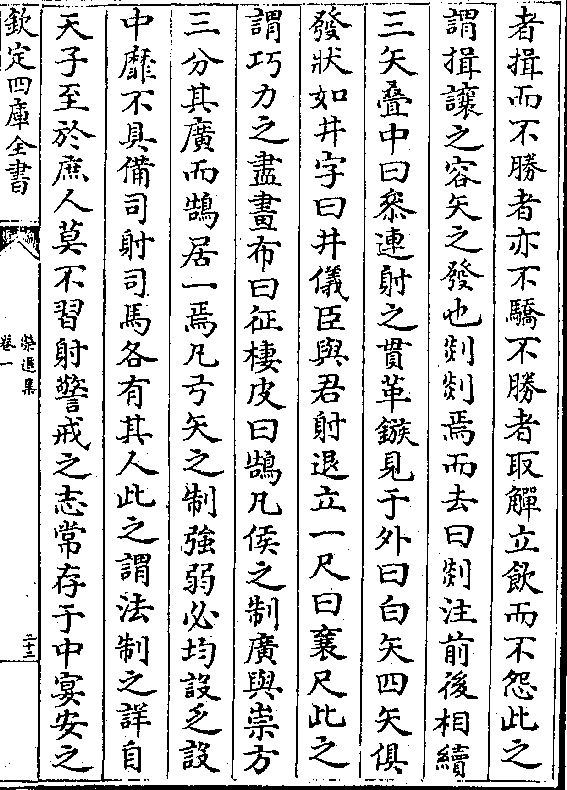 者揖而不勝者亦不驕不勝者取觶立飲而不怨此之
謂揖讓之容矢之發也剡剡焉而去曰剡注前後相續
三矢疊中曰叅連射之貫革鏃見于外曰白矢四矢俱
發狀如井字曰井儀臣與君射退立一尺曰襄尺此之
謂巧力之盡畫布曰征棲皮曰鵠凡侯之制廣與崇方
三分其廣而鵠居一焉凡弓矢之制強弱必均設乏設
中靡不具備司射司馬各有其人此之謂法制之詳自
天子至於庶人莫不習射警戒之志常存于中宴安之
欽定四庫全書
榮進集
卷一
二十三